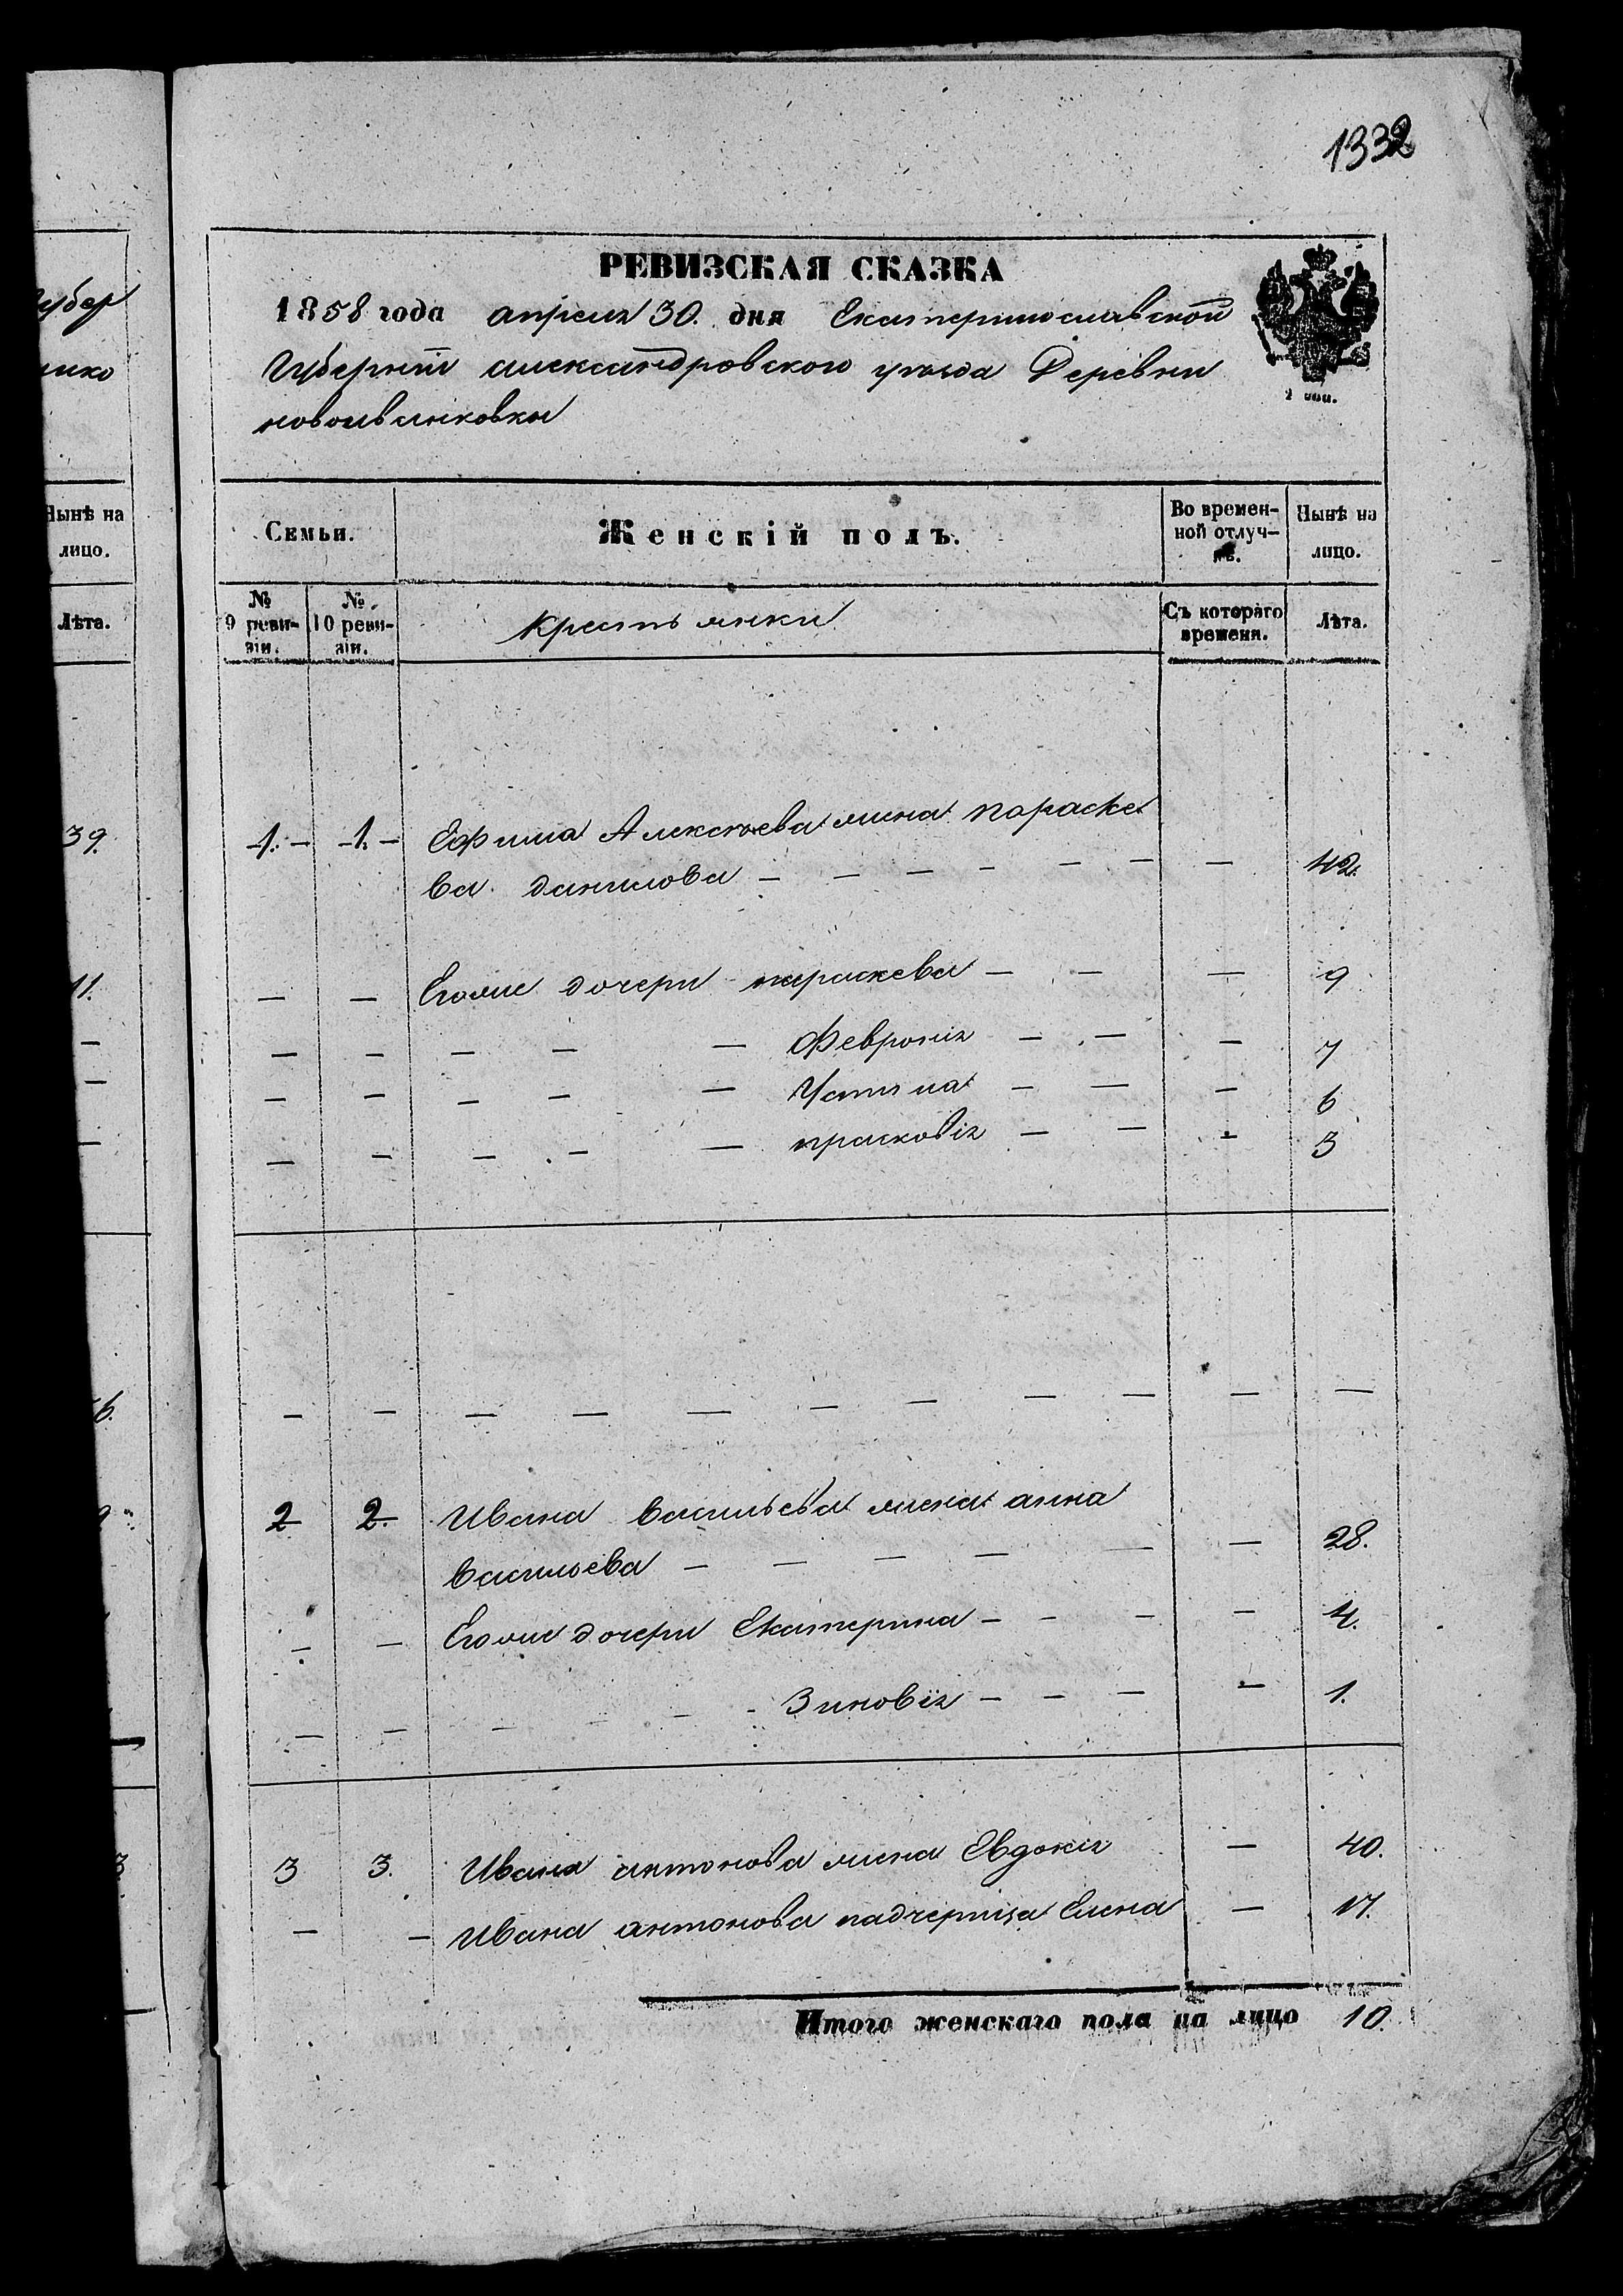 убер
нико
Нынѣ на
лицо.
Лѣта.
39.
11.
6.
9
3
1332
РЕВИЗСКАЯ СКАЗКА
1858 года апреля 30. дня Екатеринославской
Губернии александровского уѣзда Деревни
Семьи.
Женскій полъ.
Во времен-
ной отлуч-
кѣ.
Нынѣ на
лицо.
№
9 реви-
зіи.
№
10 реви-
зіи.
крестьянки
Съ котораго
времени.
Лѣта.
1. — 1. — Ефима Алексѣева жена параске
ва данилова — — — — — — — 42.
— — Егоже дочери параскева — — — 9
— — — — — Февронія — — — 7
— — — — — Устина — — — 6
— — — — — прасковія — — — 3
— — — — — — — — — — —
2 2. Ивана васильева жена анна
васильева — — — — — — 28.
— — Егоже дочери Екатерина — — — — 4.
— — — — — - Зиновія — — — — 1.
3 3. Ивана антонова жена Евдокія — 40.
— — Ивана антонова падчерица Елена — 17.
Итого женскаго пола на лицо 10.